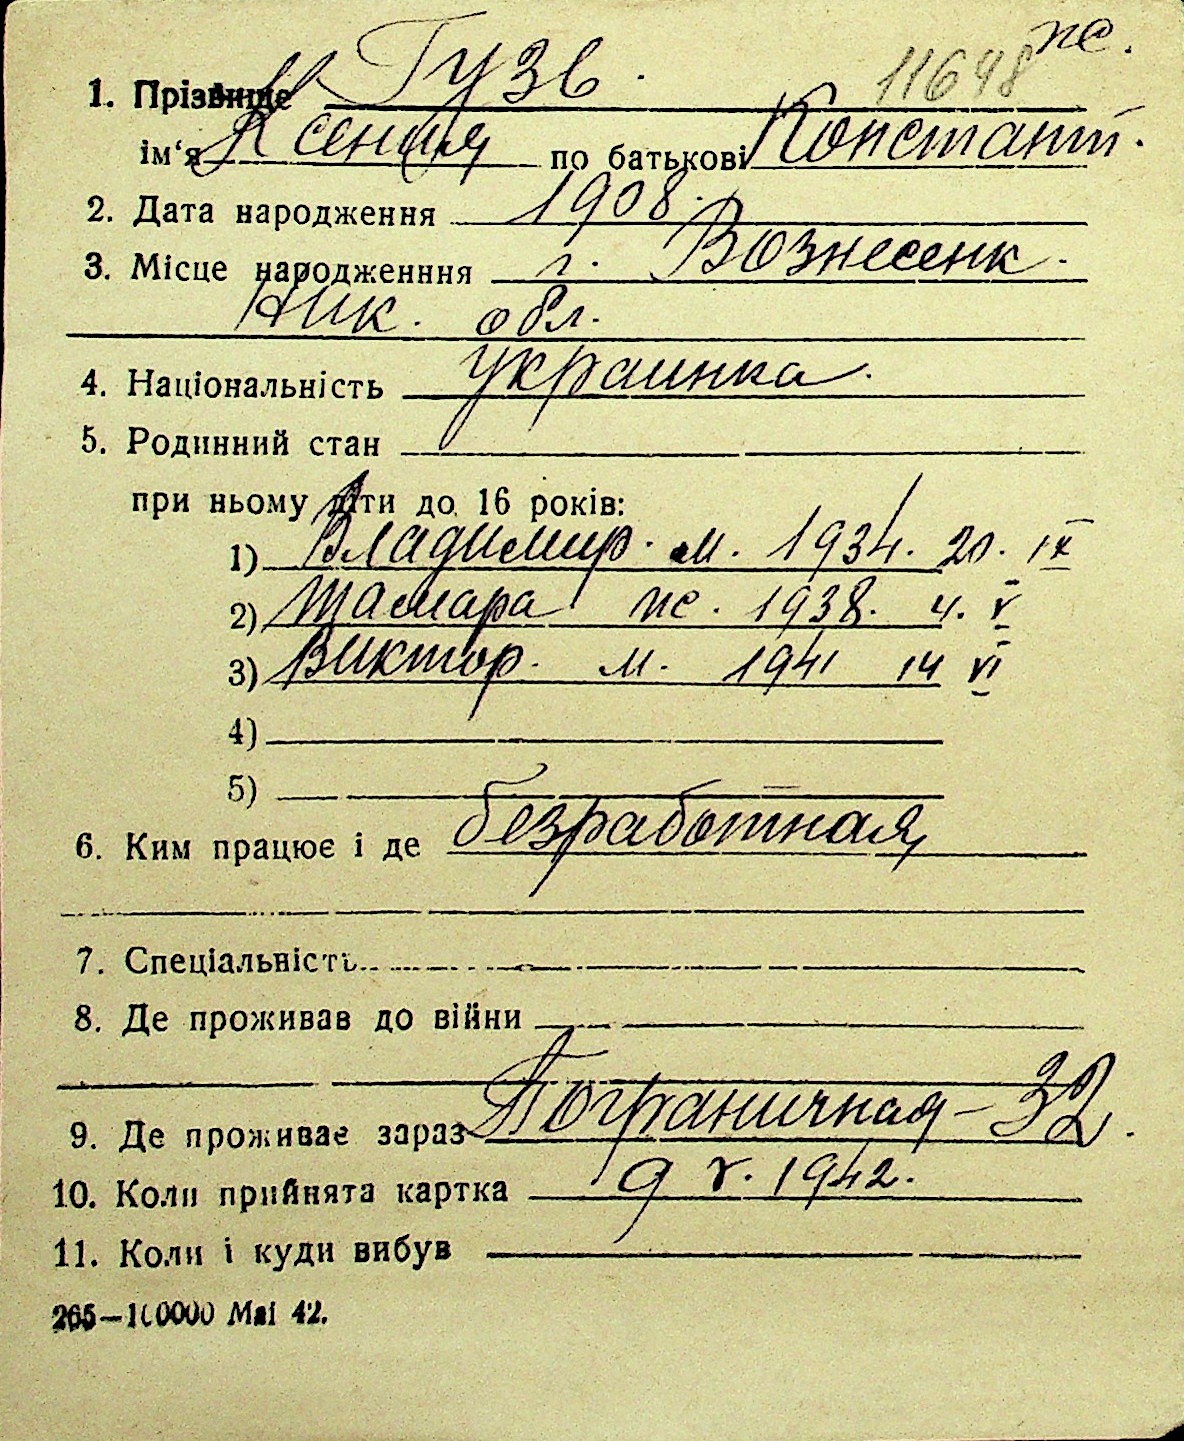 ж.
11648
1. Прізвище Гузь.
ім‘я Ксения по батькові Констант.
2. Дата народження 1908.
3. Місце народженння г. Вознесенк.
Ник. обл.
4. Національність украинка.
5. Родинний стан
при ньому діти до 16 років:
1) Владимир. м. 1934. 20. IX
2) Тамара ж. 1938. 4. V
3) Виктор. м. 1941 14 VI
4)
5)
6. Ким працює і де безработная
7. Спеціальність
8. Де проживав до війни
9. Де проживає зараз Пограничная - 32.
10. Коли прийнята картка 9 V. 1942.
11. Коли і куди вибув
265—100000 Маі 42.